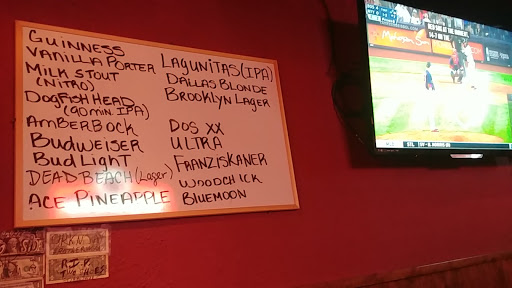 GUINNESS
VANILLA PORTER
MILK STOUT
(NITRO)
DOGFISH HEAD
(90 MIN. IPA)
AMBERBOCK
BUDWEISER
BUD LIGHT
DEAD BEACH (Lager)
ACE PINEAPPLE
LAGUNITAS (IPA)
DALLAS BLONDE
BROOKLYN LAGER
DOS XX
ULTRA
FRANZISKANER
WOODCHICK
BLUEMOON
R.I.P.